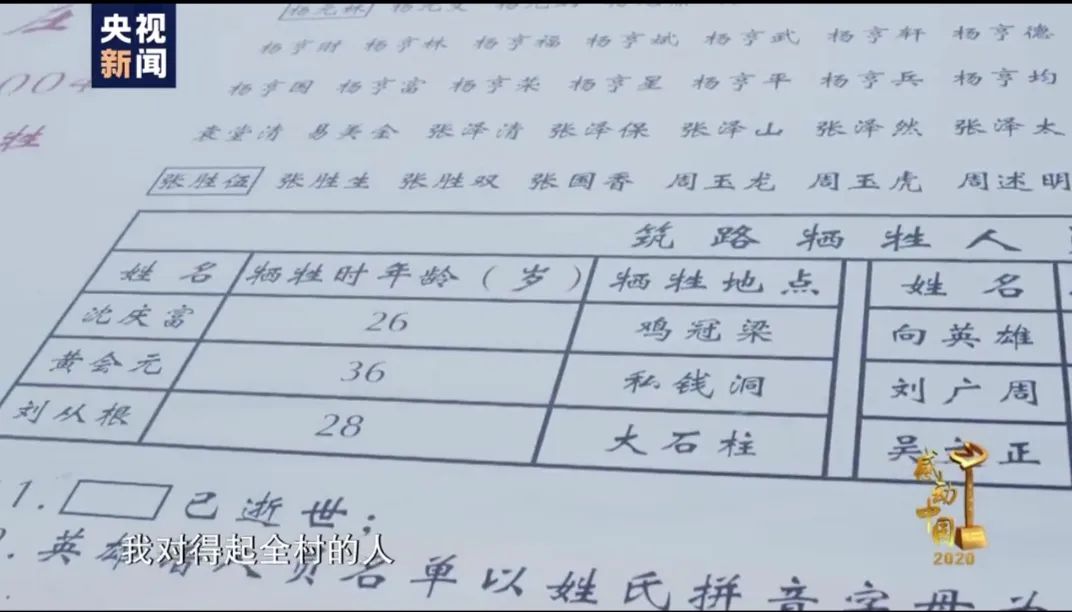 央视
新闻
杨亨财 杨亨林 杨亨福 杨亨斌 杨亨武 杨亨轩 杨亨德
杨亨国 杨亨富 杨亨荣 杨亨星 杨亨平 杨亨兵 杨亨均
袁堂清 易美金 张泽清 张泽保 张泽山 张泽然 张泽太
张胜伍 张胜生 张胜双 张国香 周玉龙 周玉虎 周述明
筑路牺牲人
姓名 牺牲时年龄（岁） 牺牲地点 姓名
沈庆富 26 鸡冠梁 向英雄
黄会元 36 私钱洞 刘广周
刘从根 28 大石柱 吴 正
1. 已逝世；
英雄 名单以姓氏拼音字母
我对得起全村的人
感动中国
2020